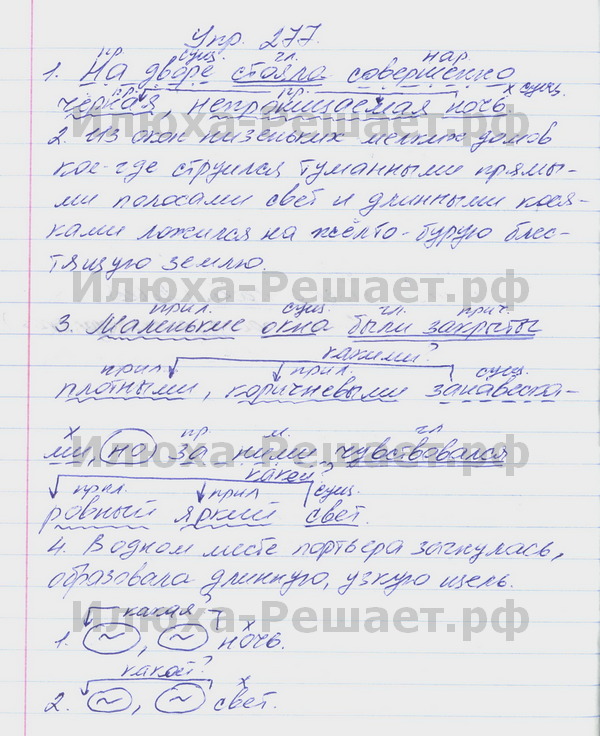 Упр. 277.
пр. сущ. гл. нар.
1. На дворе стояла совершенно
пр. пр. х сущ.
чёрная, непроницаемая ночь.
2. Из окон низеньких мелких домов
кое-где струился туманными прямы-
ми полосами свет и длинными кося-
ками ложился на жёлто-бурую блес-
тящую землю.
Илюха-Решает.рф
прил. сущ. гл. прич.
3. Маленькие окна были закрыты
какими?
прил. прил. сущ.
плотными, коричневыми занавеска-
х пр. м. гл.
ми, но за ними чувствовался
какой?
прил. прил. сущ.
ровный яркий свет.
4. В одном месте портьера загнулась,
образовала длинную, узкую щель.
какая?
1. ~, ~ ночь.
какой?
2. ~, ~ свет.
Илюха-Решает.рф